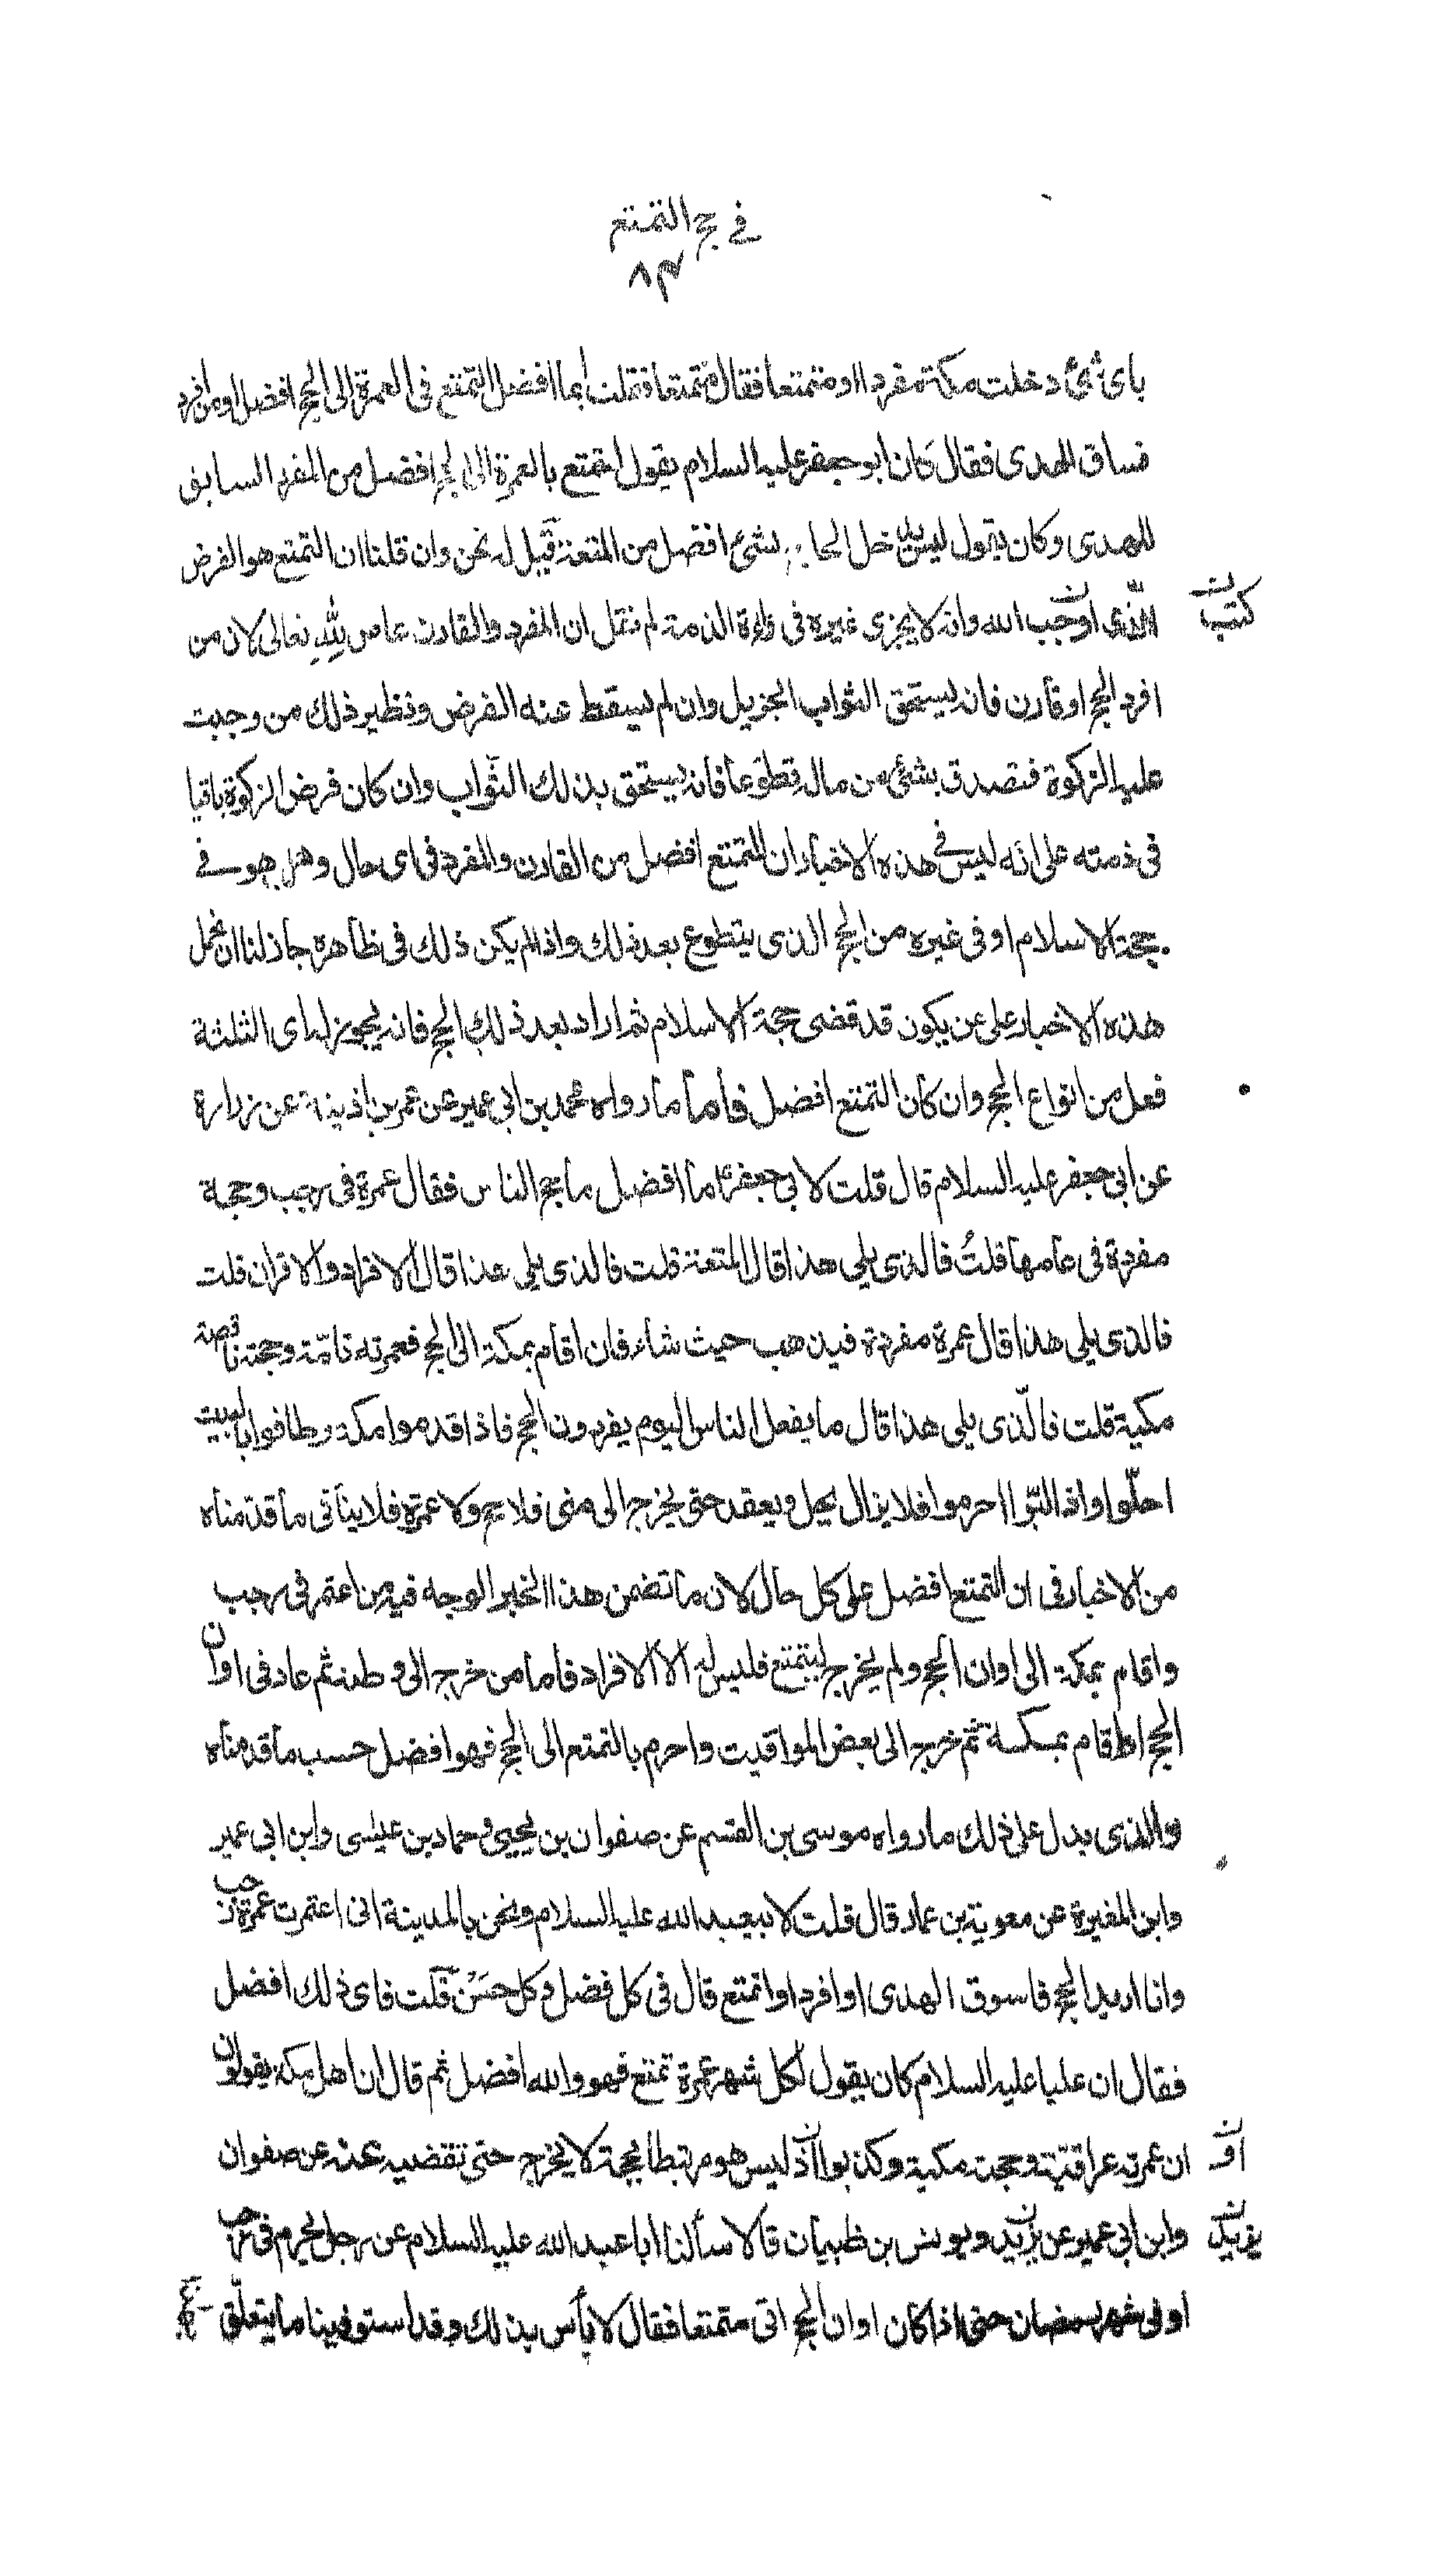 في حج التمتع
٨٣
باى شئ دخلت مكة مفردا او متمتعا فقال متمتعا فقلت ايما افضل التمتع فى العمرة الى الحج افضل او من افرد
فساق الهدى فقال كان ابو جعفر عليه السلام يقول المتمتع بالعمرة الى الحج افضل من المفرد السابق
للهدى وكان يقول ليس يدخل الحاج بشئ افضل من المتعة قيل له نحن وان قلنا ان التمتع هو الفرض
الذى اوجب الله وانه لا يجزى غيره فى براءة الذمة لم نقل ان المفرد والقارن عاص لله تعالى لان من
كتب
افرد الحج او قارن فانه يستحق الثواب الجزيل وان لم يسقط عنه الفرض ونظير ذلك من وجبت
عليه الزكوة فتصدق بشئ من ماله تطوعا فانه يستحق بذلك الثواب وان كان فرض الزكوة باقيا
فى ذمته على انه ليس فى هذه الاخبار ان المتمتع افضل من القارن والمفرد فى اى حال وهل هو فى
حجة الاسلام او فى غيره من الحج الذى يتطوع بعد ذلك واذا لم يكن ذلك فى ظاهره جاز لنا ان نحمل
هذه الاخبار على من يكون قد قضى حجة الاسلام ثم اراد بعد ذلك الحج فانه يجوز له اى الثلثة
فعل من انواع الحج وان كان التمتع افضل فأما ما رواه محمد بن ابى عمير عن عمر بن اذينة عن زرارة
عن ابى جعفر عليه السلام قال قلت لابى جعفر ع ما افضل ما حج الناس فقال عمرة فى رجب وحجة
مفردة فى عامها قلتُ فالذى يلى هذا قال المتعة قلت فالذى يلى هذا قال الافراد والاقران قلت
فالذى يلى هذا قال عمرة مفردة فيذهب حيث شاء فان اقام بمكة الى الحج فعمرته تامّة وحجته ناقصة
مكية قلت فالّذى يلى هذا قال ما يفعل الناس اليوم يفردون الحج فاذا قدموا مكة وطافوا بالبيت
احلّوا واذا لبّوا احرموا فلا يزال يحل ويعقد حتى يخرج الى منى فلا حج ولا عمرة فلا ينافى ما قدمناه
من الاخبار فى ان التمتع افضل على كل حال لان ما تضمن هذا الخبر الوجه فيه من اعتمر فى رجب
واقام بمكة الى اوان الحج ولم يخرج ليتمتع فليس له الا الافراد فأما من خرج الى وطنه ثم عاد فى اوان
الحج او اقام بمكة ثم خرج الى بعض المواقيت واحرم بالتمتع الى الحج فهو افضل حسب ما قدمناه
والذى يدل على ذلك ما رواه موسى بن القسم عن صفوان بن يحيى وحماد بن عيسى وابن ابى عمير
وابن المغيرة عن معوية بن عمار قال قلت لابيعبد الله عليه السلام ونحن بالمدينة انى اعتمرت عمرة رجب
وانا اريد الحج فاسوق الهدى او افرد او اتمتع قال فى كل فضل وكل حسن قلت فاى ذلك افضل
فقال ان عليا عليه السلام كان يقول لكل شهر عمرة تمتع فهو والله افضل ثم قال ان اهل مكة يقولون
ان عمرته عراقية وحجته مكية وكذبوا اذ ليس هو مرتبطا بحجة لا يخرج حتى تقضيه عنه عن صفوان
وابن ابى عمير عن بريد ويونس بن ظبيان قالا سألنا ابا عبد الله عليه السلام عن رجل يحرم فى رجب
يزيد
او فى شهر رمضان حتى اذا كان اوان الحج اتى متمتعا فقال لا بأس بذلك وقد استوفينا ما يتعلّق